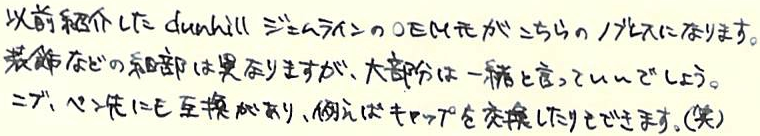 以前紹介した dunhill ジェムラインのOEM元がこちらのノブレスになります。
装飾などの細部は異なりますが、大部分は一緒と言っていいでしょう。
ニブ、ペン先にも互換があり、例えばキャップを交換したりもできます。(笑)